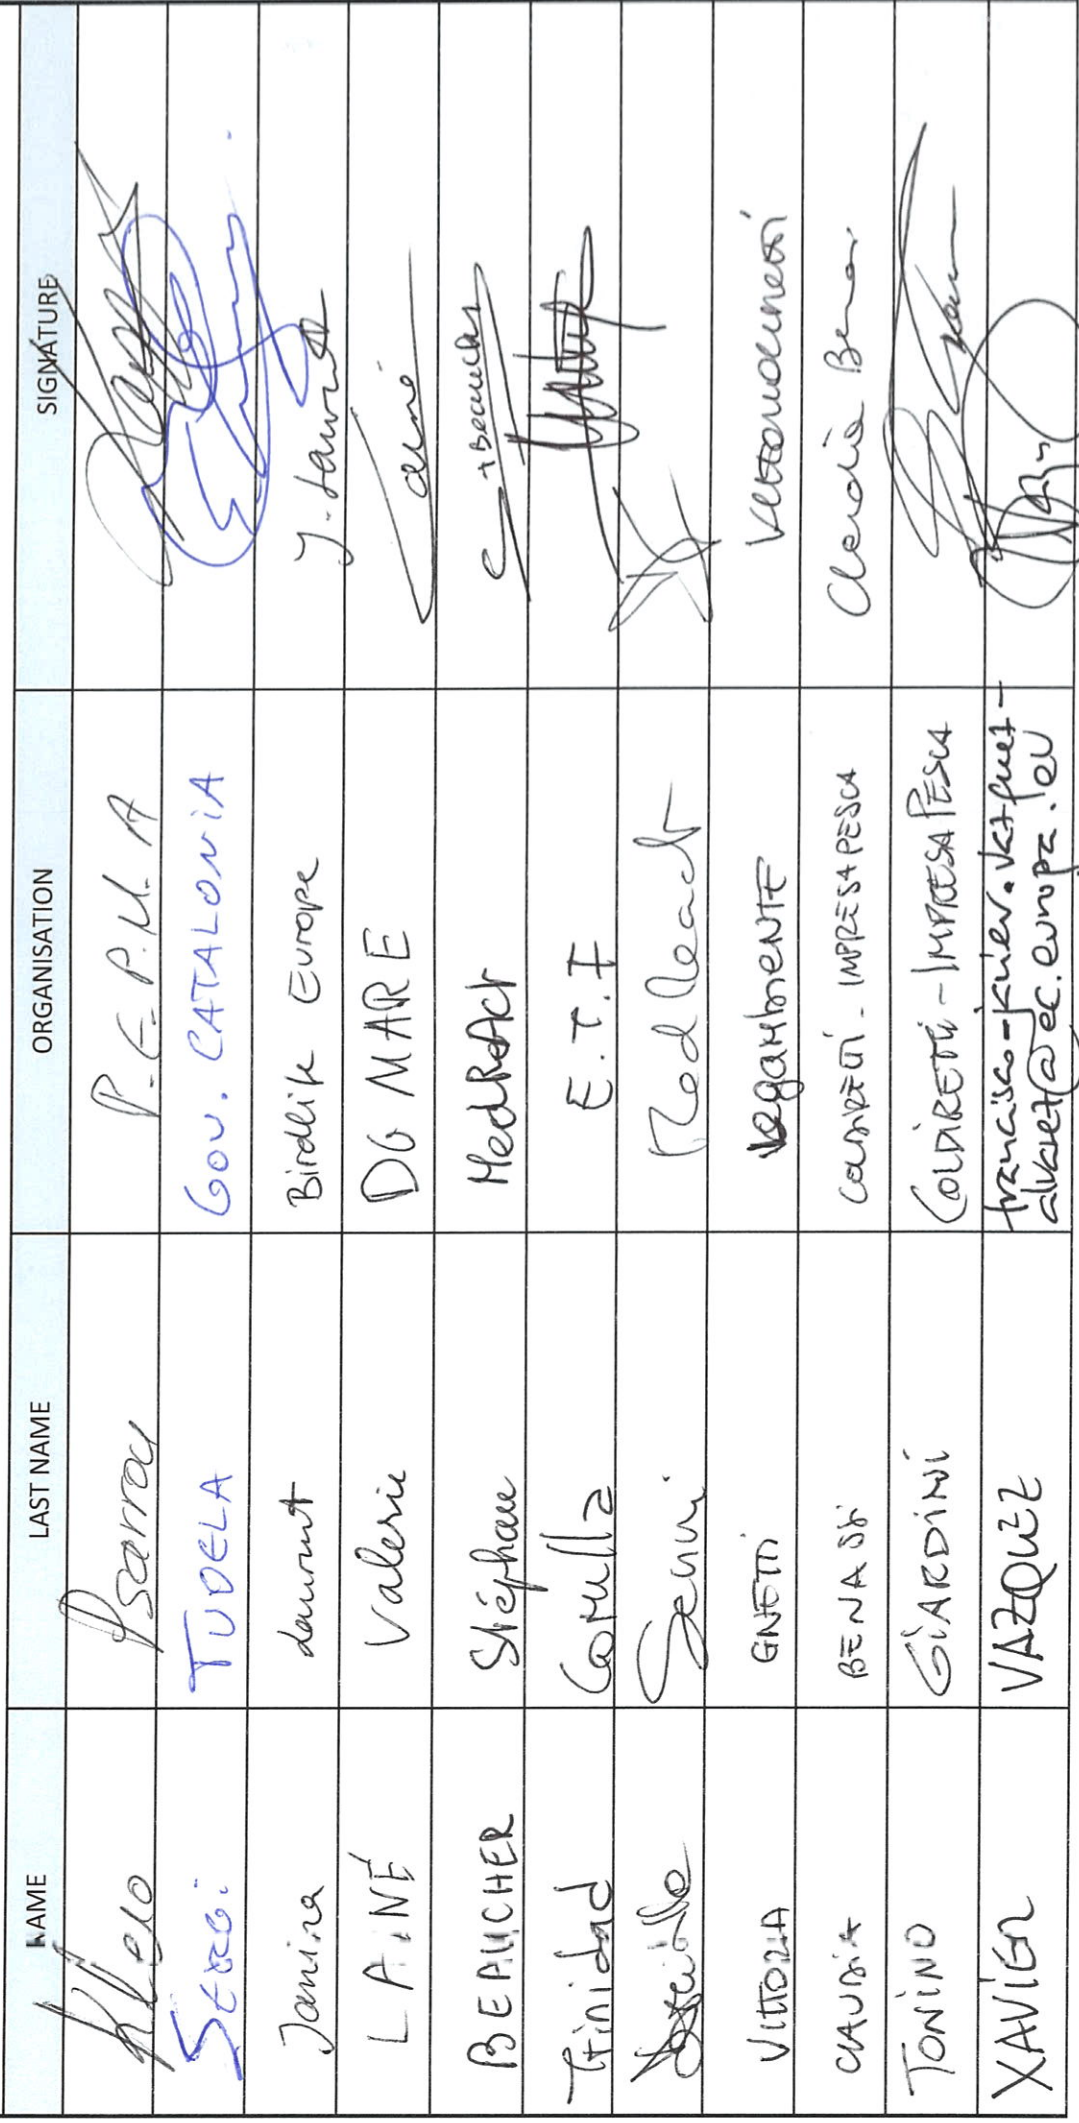 NAME LAST NAME ORGANISATION SIGNATURE
Kleio Psarrou P.E.P.M.A
SERGi TUDELA Gov. CATALONiA
Janina Laurent Birdlife Europe J. Laurent
LAiNÉ Valerie DG MARE Lainé
BEAUCHER Stéphane MedReAct Beaucher
Trinidad Comulla E.T.F
MedReact
VITTORIA GNETTI Legambiente Vittoria Gnetti
CLAUDIA BENASSI COLDIRETTI - IMPRESAPESCA Claudia Benassi
TONINO GIARDINI COLDIRETTI - IMPRESAPESCA
XAVIER VAZQUEZ francisco-javier.vazquez-
alvarez@ec.europa.eu